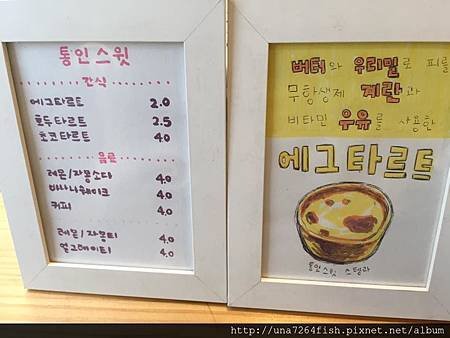 통인스윗
간식
에그타르트 2.0
호두타르트 2.5
초코타르트 4.0
음료
레몬/자몽소다 4.0
바나나쉐이크 4.0
커피 4.0
레몬/자몽티 4.0
얼그레이티 4.0
버터와 우리밀로 피를
무항생제 계란과
비타민 우유를 사용한
에그타르트
통인스윗 스텔라
http://una7264fish.pixnet.net/album